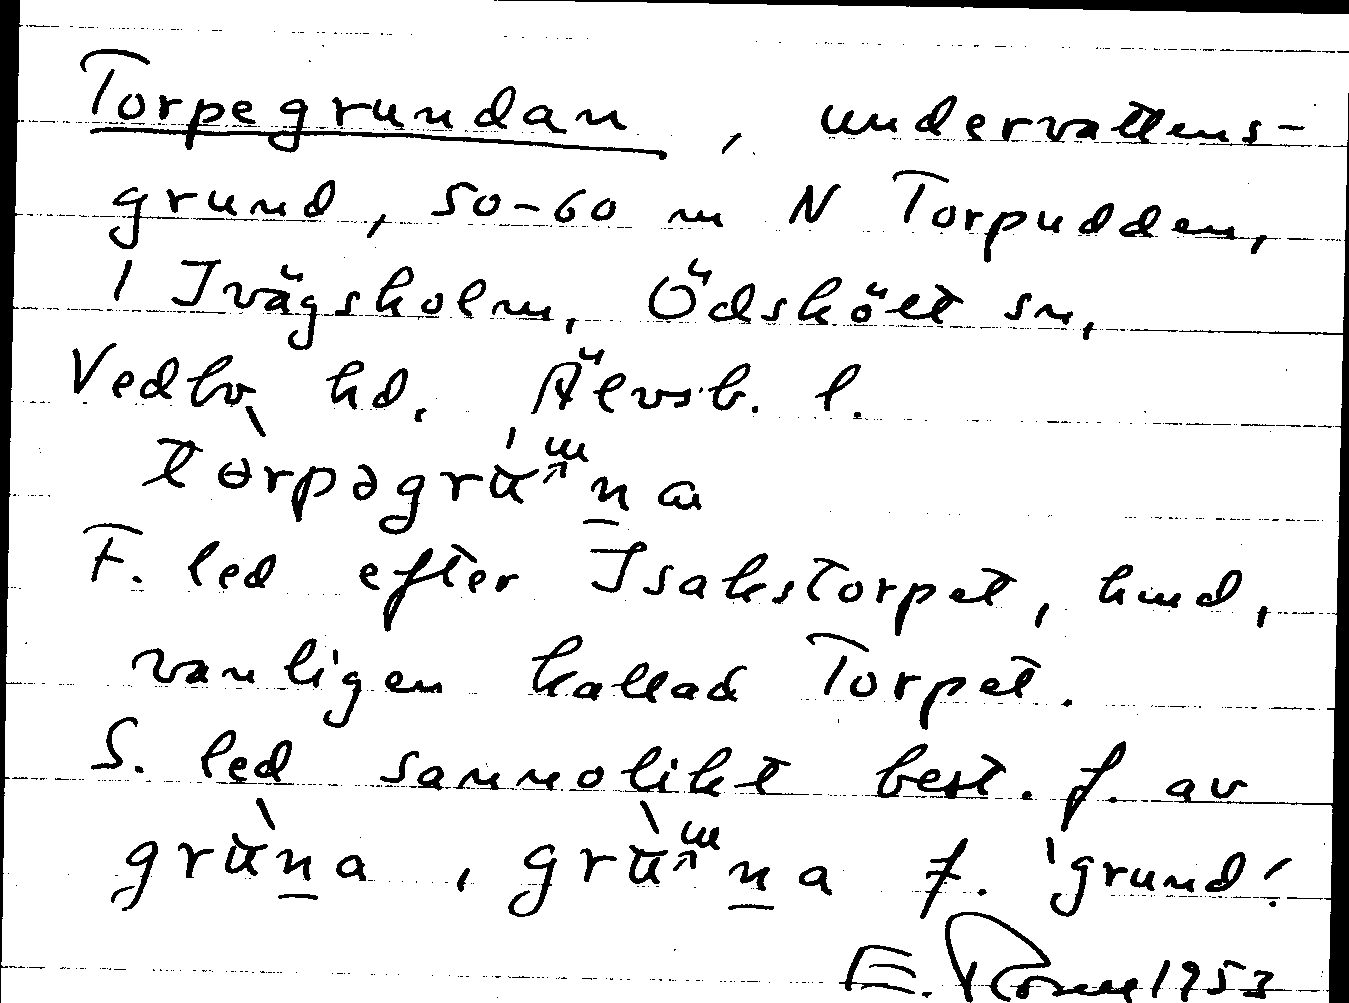 Torpegrundan, undervattens-
grund, 50-60 m N Torpudden,
1 Ivägsholm, Ödskölt sn,
Vedbo hd. Älvsb. l.
F. led efter Isakstorpet, hmd,
vanligen kallad Torpet.
S. led sannolikt best. f. av
f. 'grund'.
E. 1953